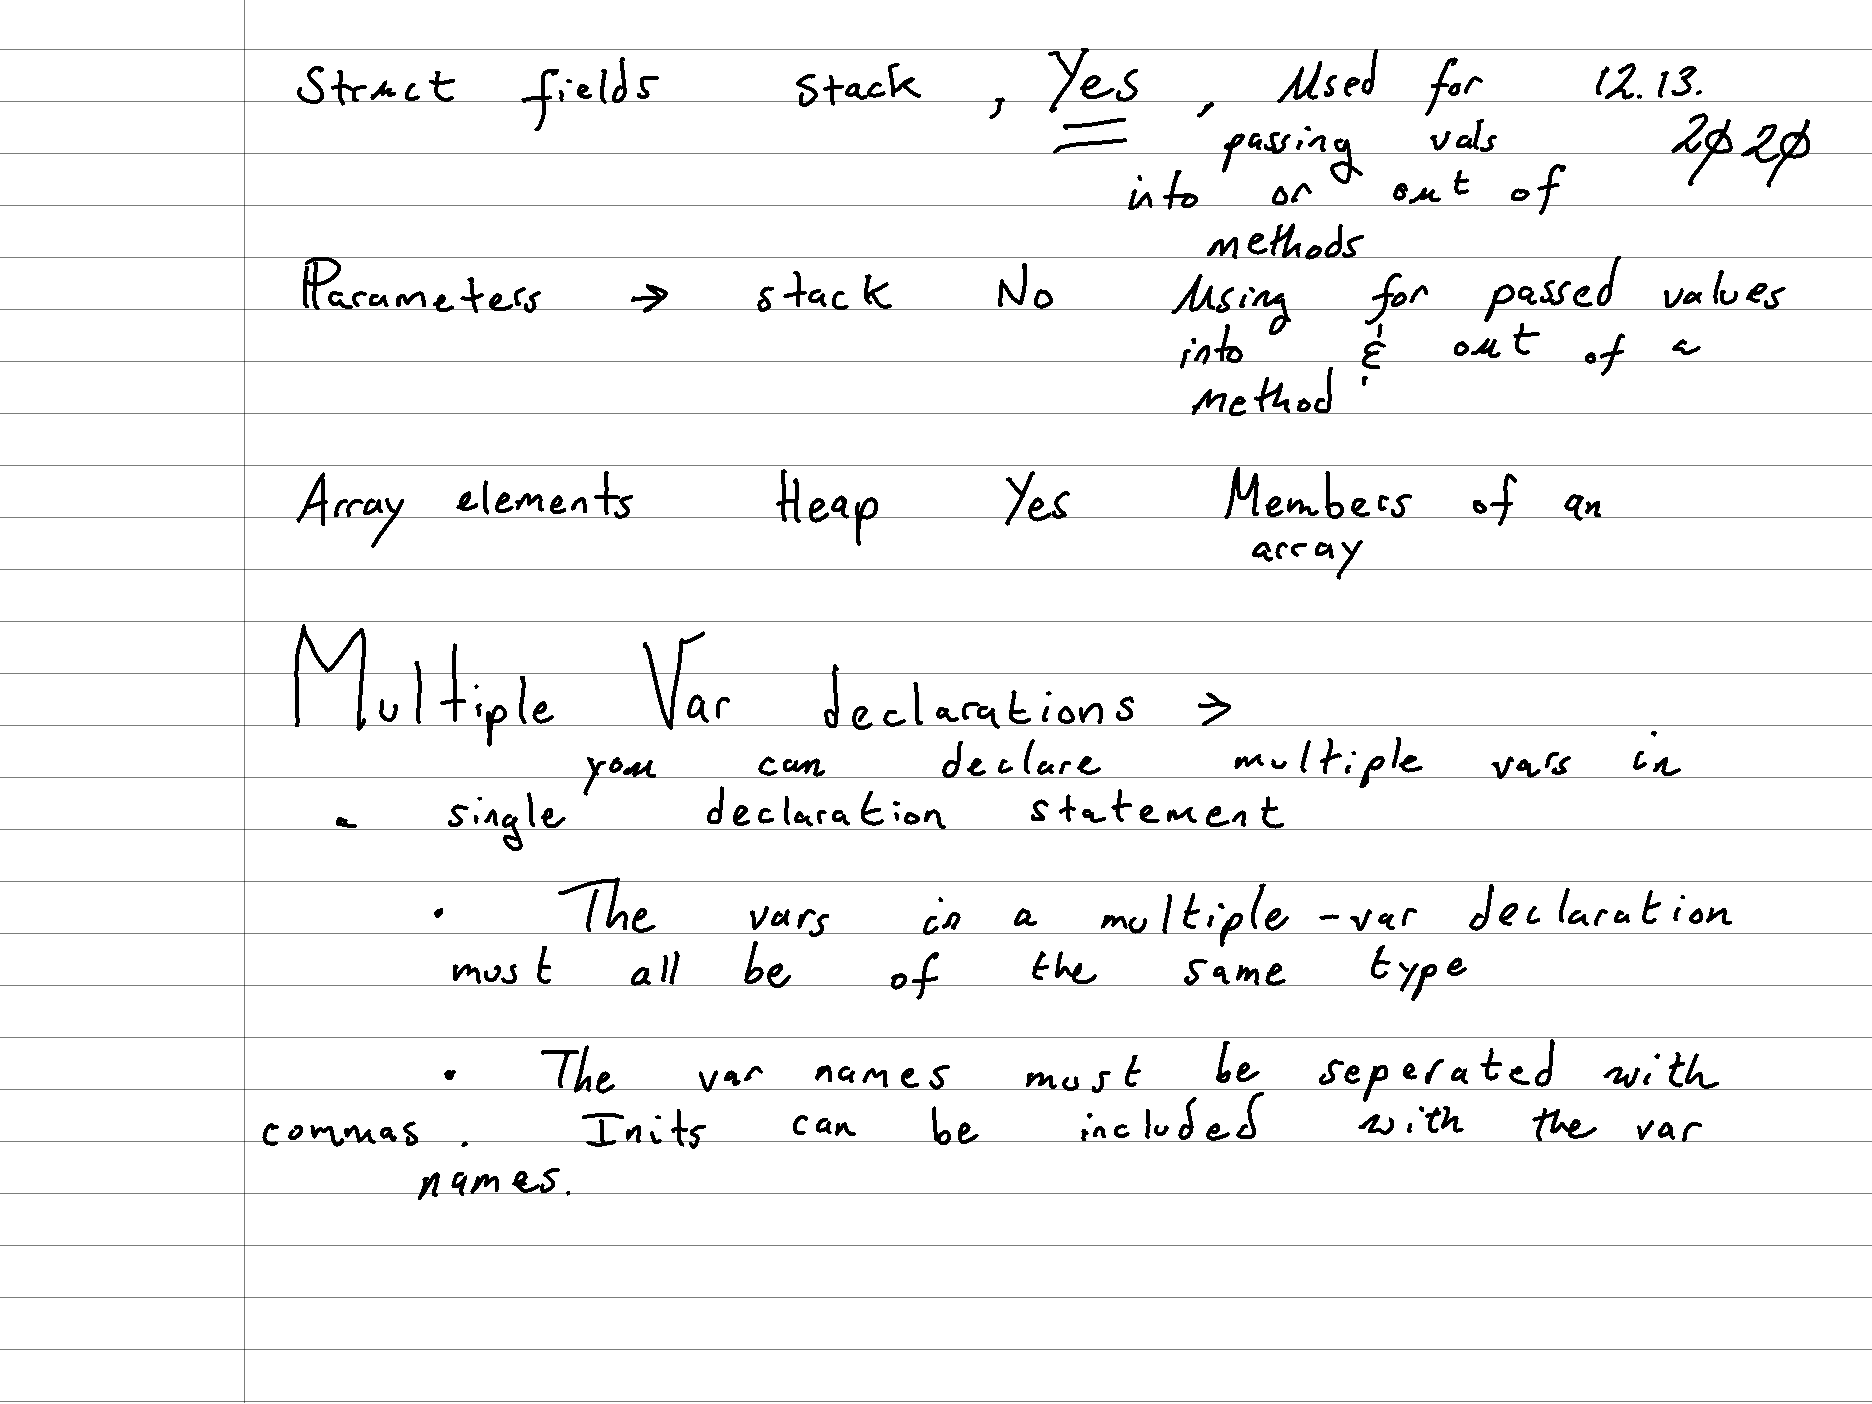 Struct fields stack , Yes , Used for 12.13.
passing vals 2020
into or out of
methods
Parameters → stack No Using for passed values
into & out of a
method
Array elements Heap Yes Members of an
array
Multiple Var declarations →
you can declare multiple vars in
a single declaration statement
· The vars in a multiple-var declaration
must all be of the same type
· The var names must be seperated with
commas. Inits can be included with the var
names.